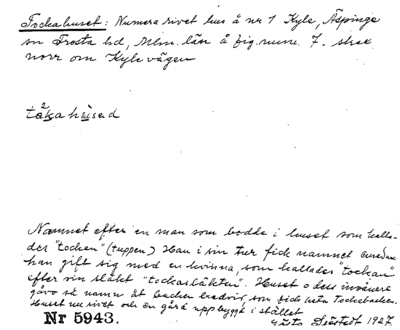 Tockahuset: Numera rivet hus å nr 1 Kyle, Äspinge
sn Frosta hd, Mlm. län å fig. num. 7. strax
norr om Kyle vägen
tåkahused
Namnet efter en man som bodde i huset som kalla-
des "tocken" (tuppen) Han i sin tur fick namnet emedan
han gift sig med en kvinna, som kallades "tockan"
efter sin släkt "tockasläkten". Huset o dess invånare
gåvo så namn åt backen bredvid, som fick heta Tockabacken.
Huset nu rivet och en gård uppbyggd i stället
Nr 5943.
Sjöstedt 1927.